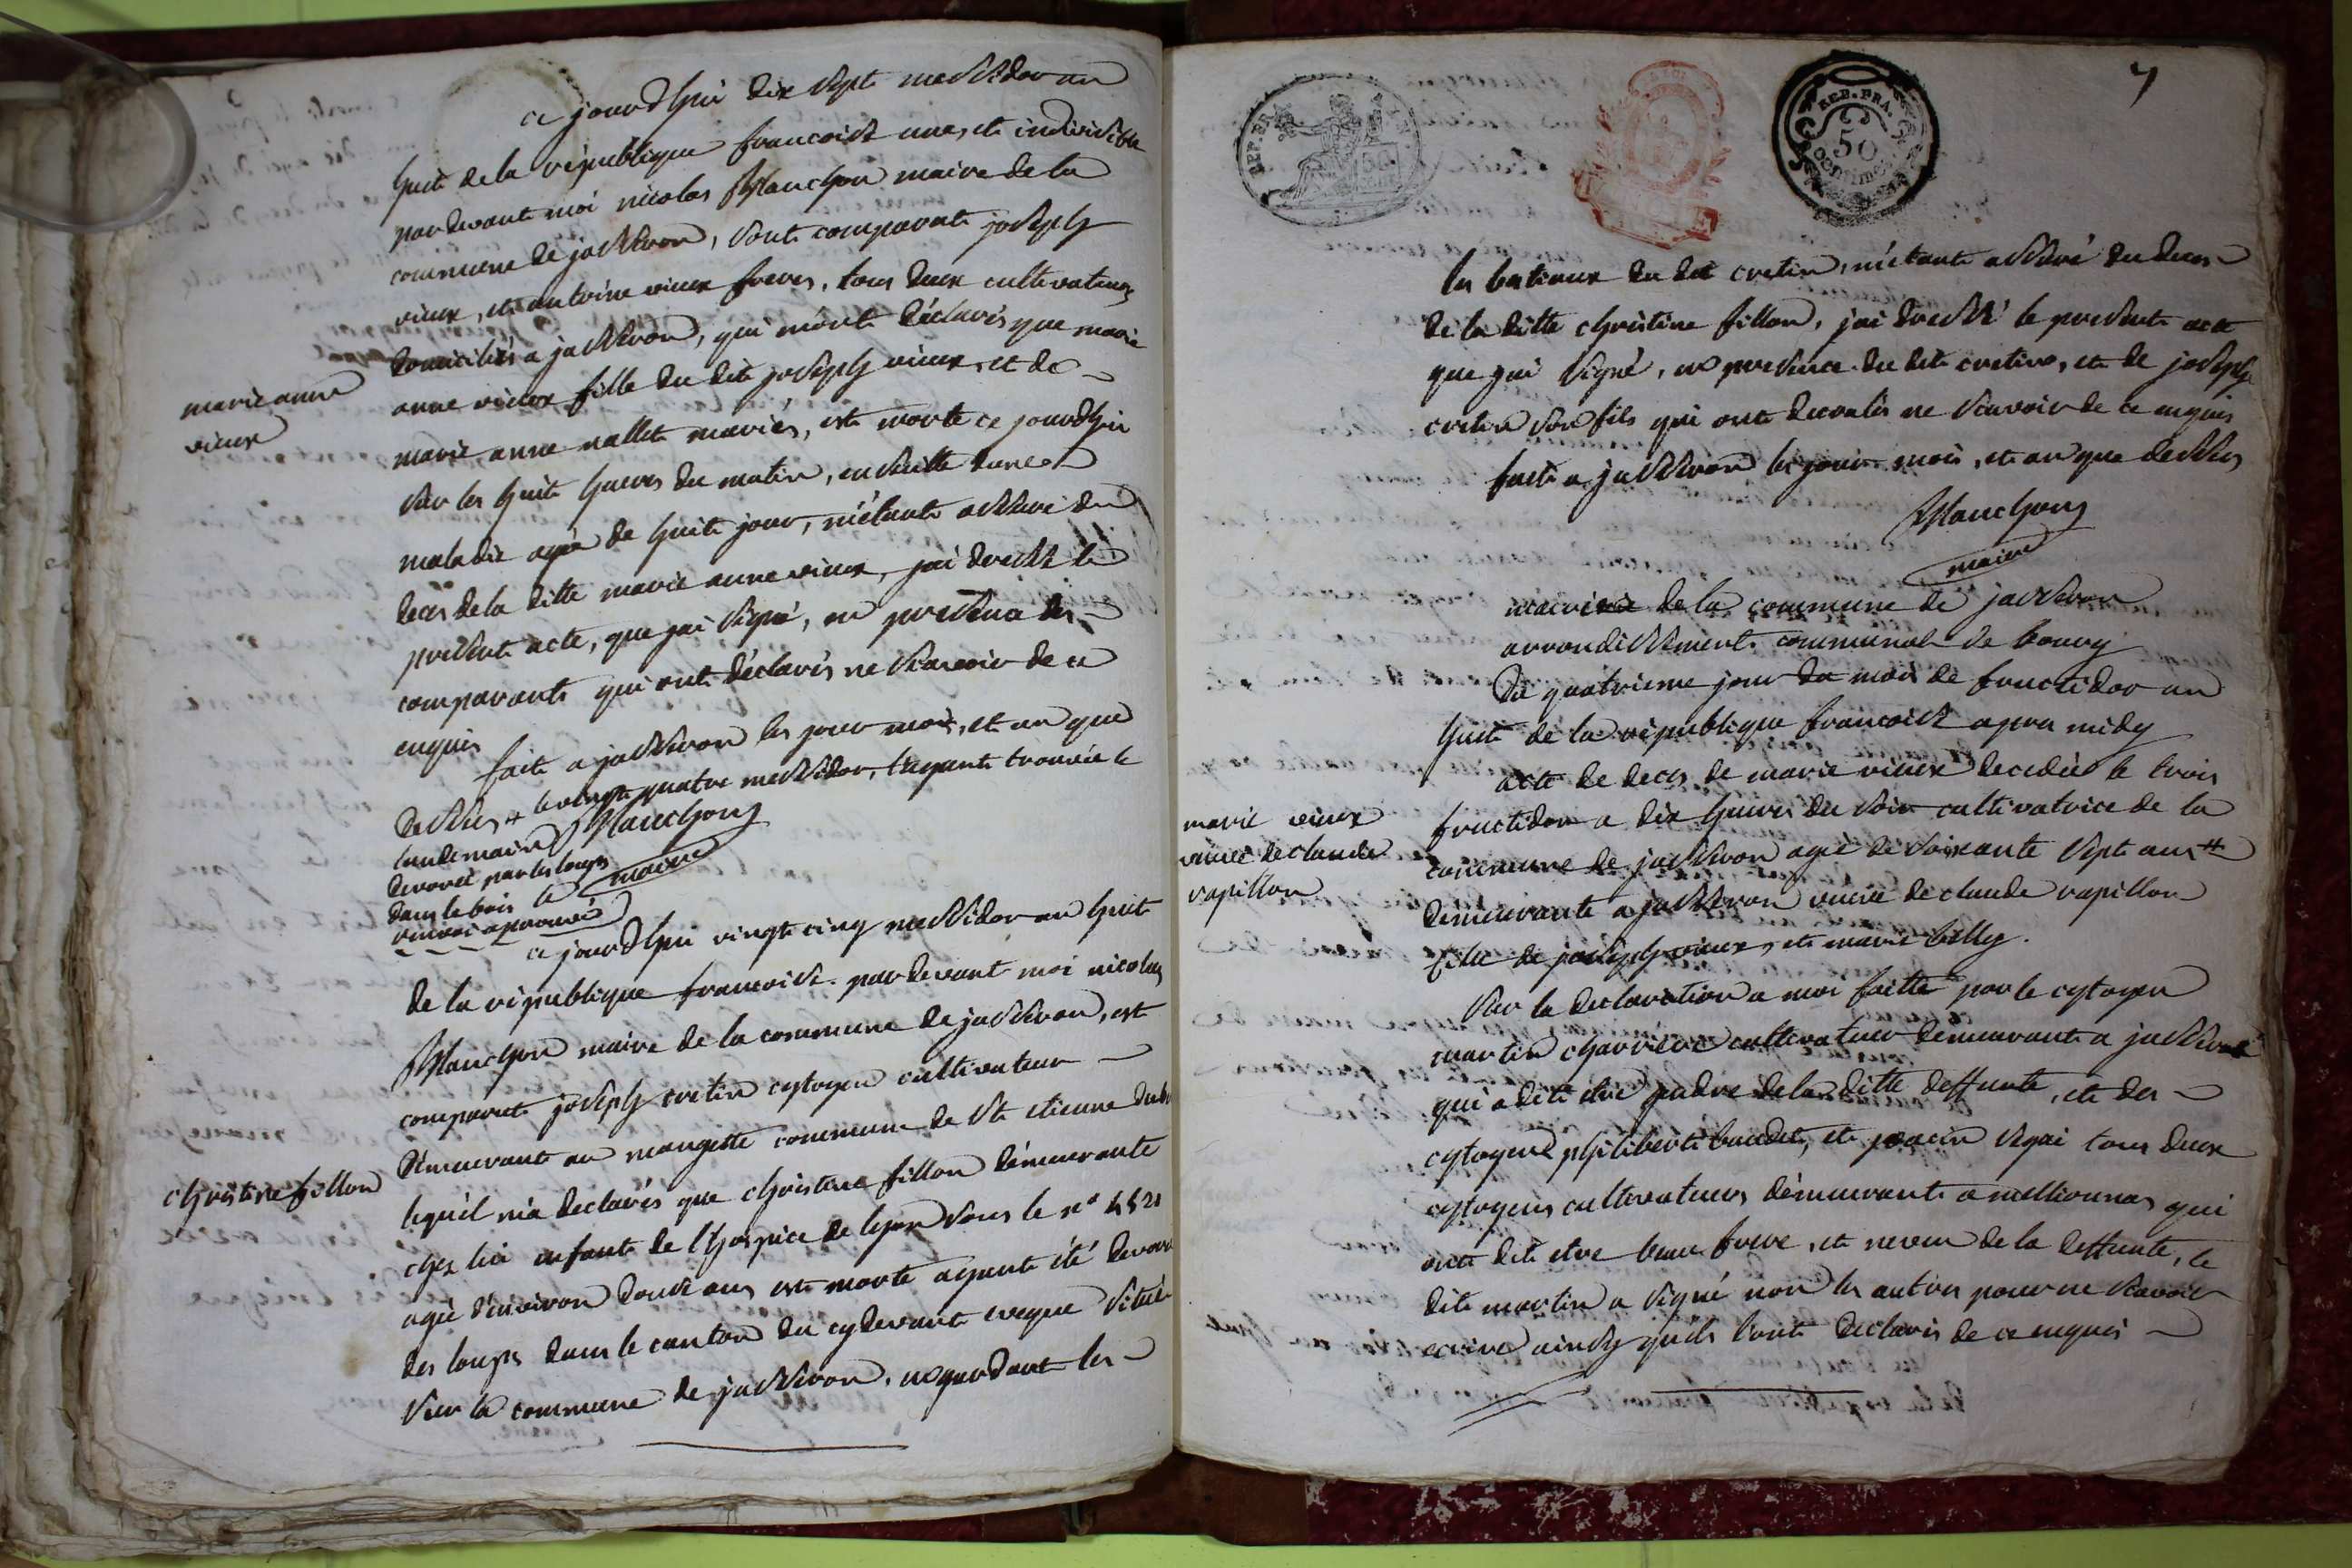 ce jourdhui dix sept messidor an
huit de la république francoise une, et indivisible
pardevant moi nicolas Manchon maire de la
commune de jasseron, sont comparut joseph
vieux, et antoine vieux freres, tous deux cultivateurs
domiciliés a jasseron, qui mont déclarés que marie
anne vieux fille du dit joseph vieux, et de
marie anne nallet mariés, est morte ce jourdhui
sur les huit heures du matin, ensuitte dune
maladie agée de huit jour, m'étant assuré du
deces de la ditte marie anne vieux, jai dressé le
present acte, que jai signé, en presence des
comparants qui ont déclarés ne scavoir de ce
enquis
fait a jasseron les jour mois, et an que
dessus + le vingt quatre messidor, l'ayant trouvée le
landemain
devorée par les loups
dans le bois le
renvoi aprouvé
Manchon
maire
marie anne
vieux
ce jourdhui vingt cinq messidor an huit
de la république francoise. par devant moi nicolas
Manchon maire de la commune de jasseron, est
comparut joseph cretin cytoyen cultivateur
démeurant au mangette commune de St etienne dub
lequél m'a declarés que christine fillon démeurante
chez lui enfant de l'hospice de lyon sous le n° 4521
agée d'environ douze ans est morte ayant été devoré
des loups dans le canton du cydevant eveque situé
sur la commune de jasseron, en gardant les
christine fillon
7
REP. FRA.
50
REP. FRA.
50
centimes
les bestiaux du dit cretin, m'étant assuré du deces
de la ditte christine fillon, jai dressé le present acte
que jai signé, en presence du dit cretin, et de joseph
cretin son fils qui ont decralés ne scavoir de ce enquis
fait a jasseron les jour mois, et an que dessus
Manchon
maire
mairie de la commune de jasseron
arrondissement communal de bourg
Du quatrieme jour du mois de fructidor an
huit de la république francoise apres midy
acte de deces de marie vieux decedée le trois
fructidor a dix heures du soir cultivatrice de la
commune de jasseron agée de soixante sept ans #
démeurante a jasseron veuve de claude rapillon
fille de joseph vieux, et marie billy.
Sur la declaration a moi faitte par le cytoyen
martin charriere cultivateur démeurant a jasseron
qui a dit etre gendre de la ditte deffunte, et des
cytoyens philibert baudet, et jeacin vepai tous deux
cytoyens cultivateurs démeurant a mellionnas qui
ont dit etre beau frere, et neveu de la deffunte, le
dit martin a signé non les autres pour ne scavoir
ecrire ainsy qu'ils l'ont declarés de ce enquis
marie vieux
veuve de claude
rapillon